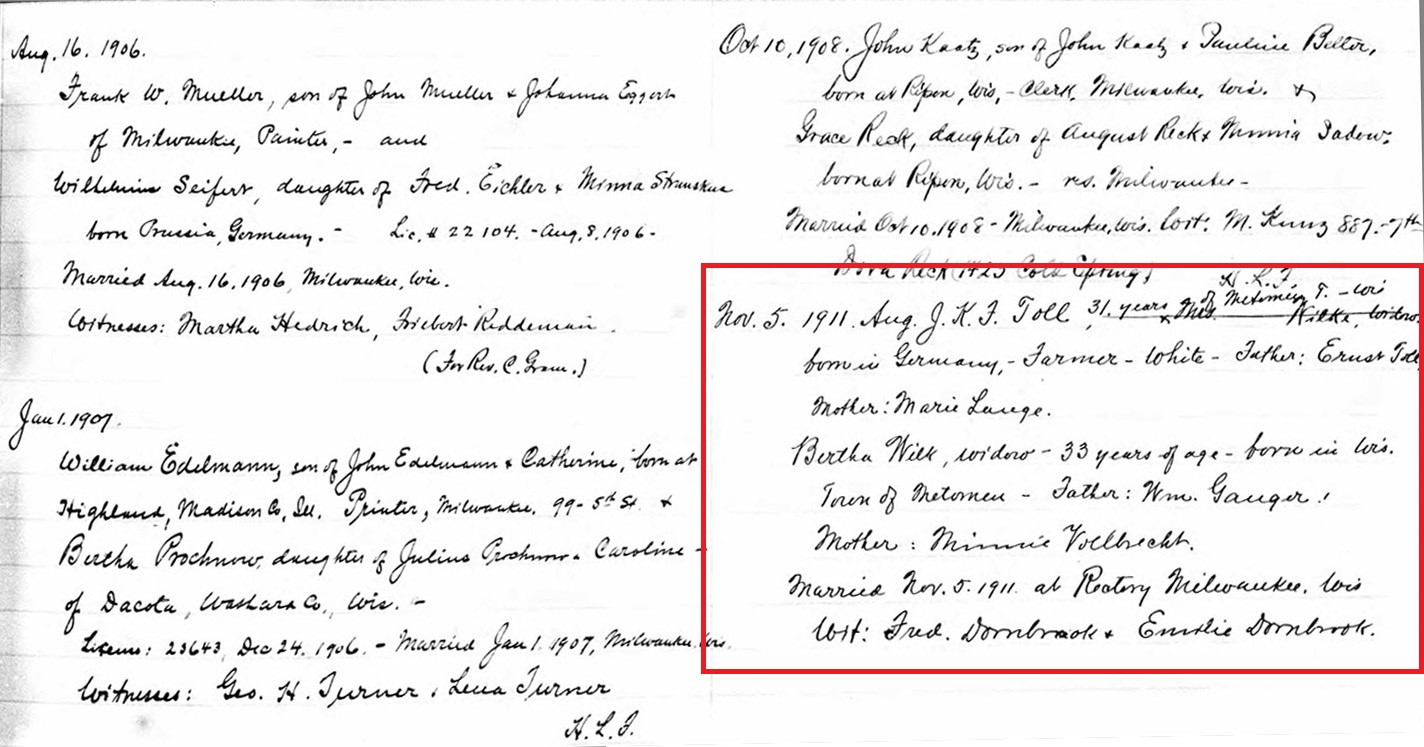 Aug. 16. 1906.
Frank W. Mueller, son of John Mueller & Johanna Eggert
of Milwaukee, Painter, - and
Wilhelmine Seifert, daughter of Fred. Eichler & Minna
born Prussia, Germany. - Lic. # 22104. - Aug. 8. 1906 -
Married Aug. 16. 1906, Milwaukee, Wis.
Witnesses: Martha Hedrich, Friebert Riddeman.
(For Rev. C. Gram.)
Jan 1. 1907.
William Edelmann, son of John Edelmann & Catherine, born at
Highland, Madison Co, Ill. Printer, Milwaukee. 99 - 5th St. &
Bertha Prochnow, daughter of Julius Prochnow & Caroline -
of Dacota, Washara Co, Wis. -
License: 23643, Dec 24. 1906. - Married Jan 1. 1907, Milwaukee, Wis.
Witnesses: Geo. H. Turner, Lena Turner
H. L. F.
Oct 10, 1908. John Kaatz, son of John Kaatz & Pauline Belter,
born at Ripon, Wis, - Clerk, Milwaukee, Wis. &
Grace Reck, daughter of August Reck & Minnia Zadow.
born at Ripon, Wis. - res. Milwaukee -
Married Oct 10. 1908 - Milwaukee, Wis. Wit: M. Kunz 887. - 7th
Dora Reck (1423 Cold Spring)
H. L. F.
Nov. 5. 1911. Aug. J. K. F. Toll, 31. years of Metomen T. - Wis
& Mrs. Wilks, widow.
born in Germany, - Farmer - White - Father: Ernst Toll
Mother: Marie Lange.
Bertha Wilk, widow - 33 years of age - born in Wis.
Town of Metomen - Father: Wm. Gauger.
Mother: Minnie Vollbrecht.
Married Nov. 5. 1911. at Rectory Milwaukee. Wis
Wit: Fred. Dornbrook & Emilie Dornbrook.